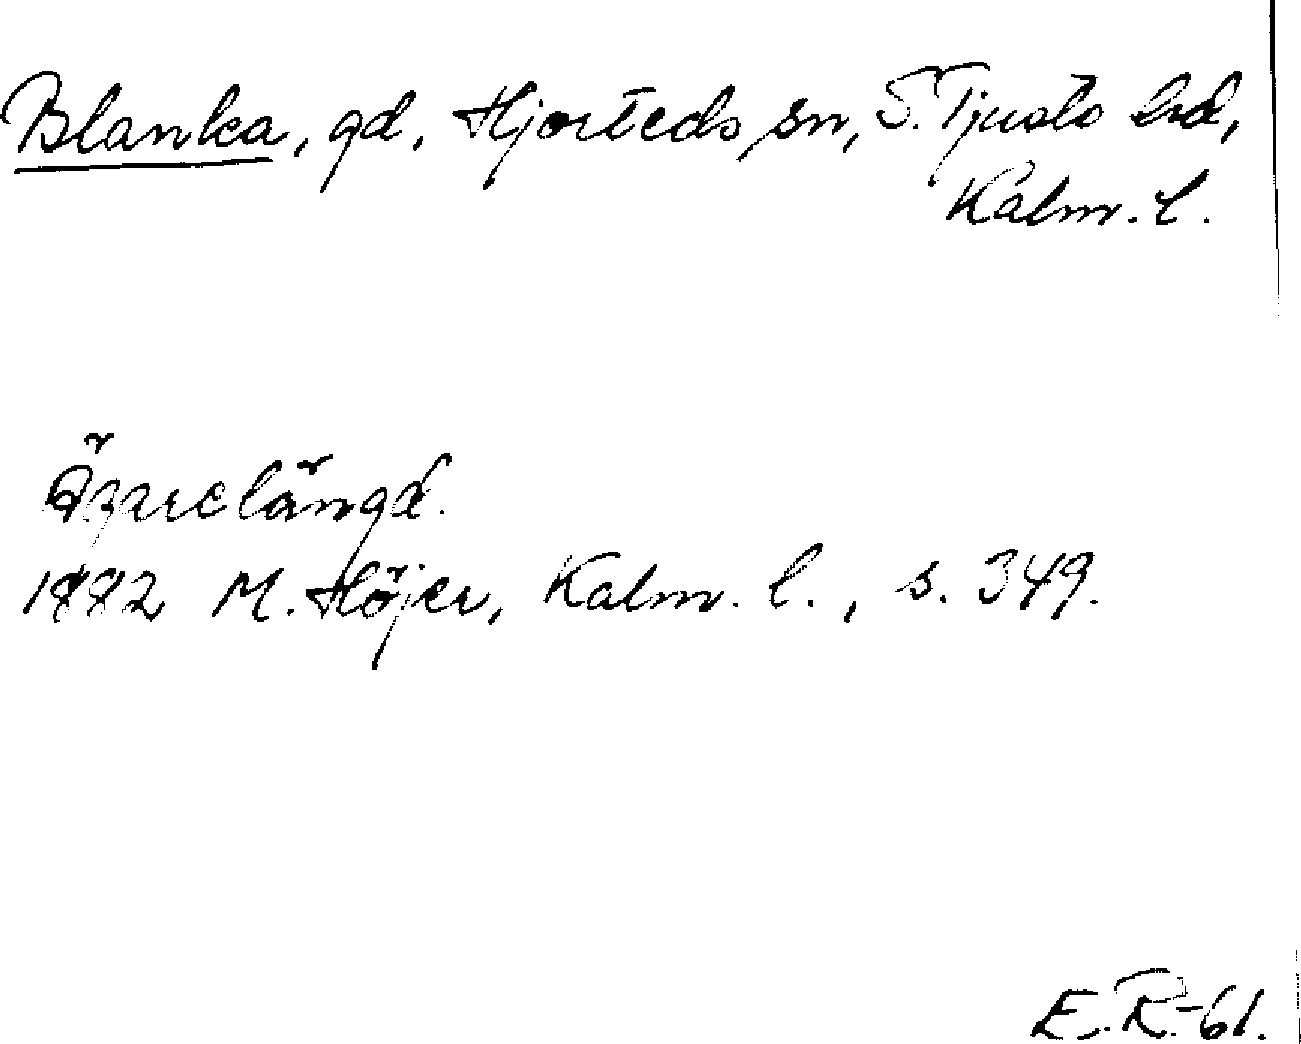 Blanka, gd, Hjorteds sn, S. Tjusts hd,
Kalm. l.
Ägarelängd.
1882 M. Höjer, Kalm. l., s. 349.
E. R.-61.